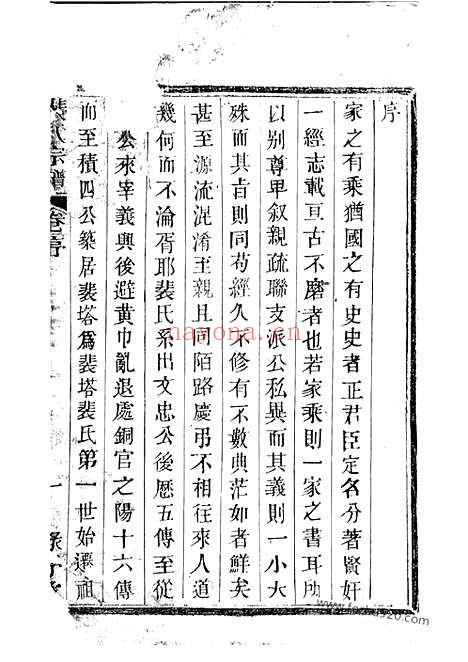 序
家之有乘猶國之有史史者正君臣定名分著賢奸
一經志載亘古不磨者也若家乘則一家之書耳所
以别尊卑叙親疏聯支派公私異而其義則一小大
殊而其㫖則同苟經久不修有不數典茫如者鮮矣
甚至源流混淆至親且同陌路慶弔不相往來人道
幾何而不淪胥耶裴氏系出文忠公後歷五傳至從
公來宰義興後避黃巾亂退處銅官之陽十六傳
而至積四公築居裴塔爲裴塔裴氏第一世始遷祖
裴氏宗譜
卷 序
一
nayona.cn